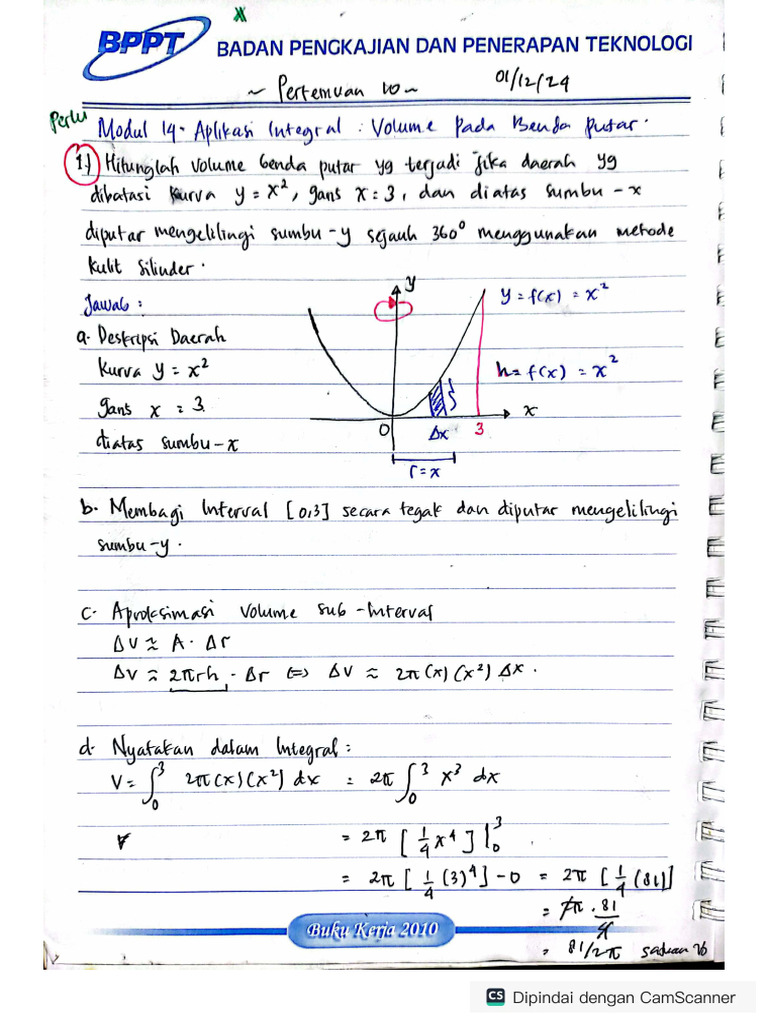 BPPT BADAN PENGKAJIAN DAN PENERAPAN TEKNOLOGI
~ Pertemuan 10 ~ 01/12/24
Perlu
Modul 14 - Aplikasi Integral : Volume Pada Benda Putar.
1.) Hitunglah volume benda putar yg terjadi jika daerah yg
dibatasi kurva y = x², garis x = 3, dan diatas sumbu-x
diputar mengelilingi sumbu-y sejauh 360° menggunakan metode
kulit silinder.
Jawab :
y
y = f(x) = x²
a. Deskripsi Daerah
kurva y = x²
h = f(x) = x²
garis x = 3.
x
diatas sumbu-x
0 Δx 3
r = x
b. Membagi Interval [0,3] secara tegak dan diputar mengelilingi
sumbu-y.
c. Aproksimasi Volume sub-Interval
ΔV ≈ A · Δr
ΔV ≈ 2πrh · Δr ⇔ ΔV ≈ 2π(x)(x²) Δx.
d. Nyatakan dalam Integral :
V = ∫₀³ 2π(x)(x²) dx = 2π ∫₀³ x³ dx
= 2π [1/4 x⁴]|₀³
= 2π [1/4 (3)⁴] - 0 = 2π [1/4 (81)]
= π . 81/
= 81/2π satuan
Buku Kerja 2010
CS Dipindai dengan CamScanner